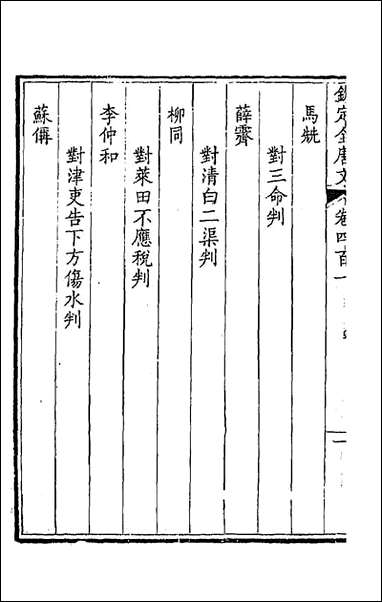 欽定全唐文卷四百一
馬兟
對三命判
薛齊
對清白二渠判
柳同
對萊田不應稅判
李仲和
對津吏告下方傷水判
蘇倜